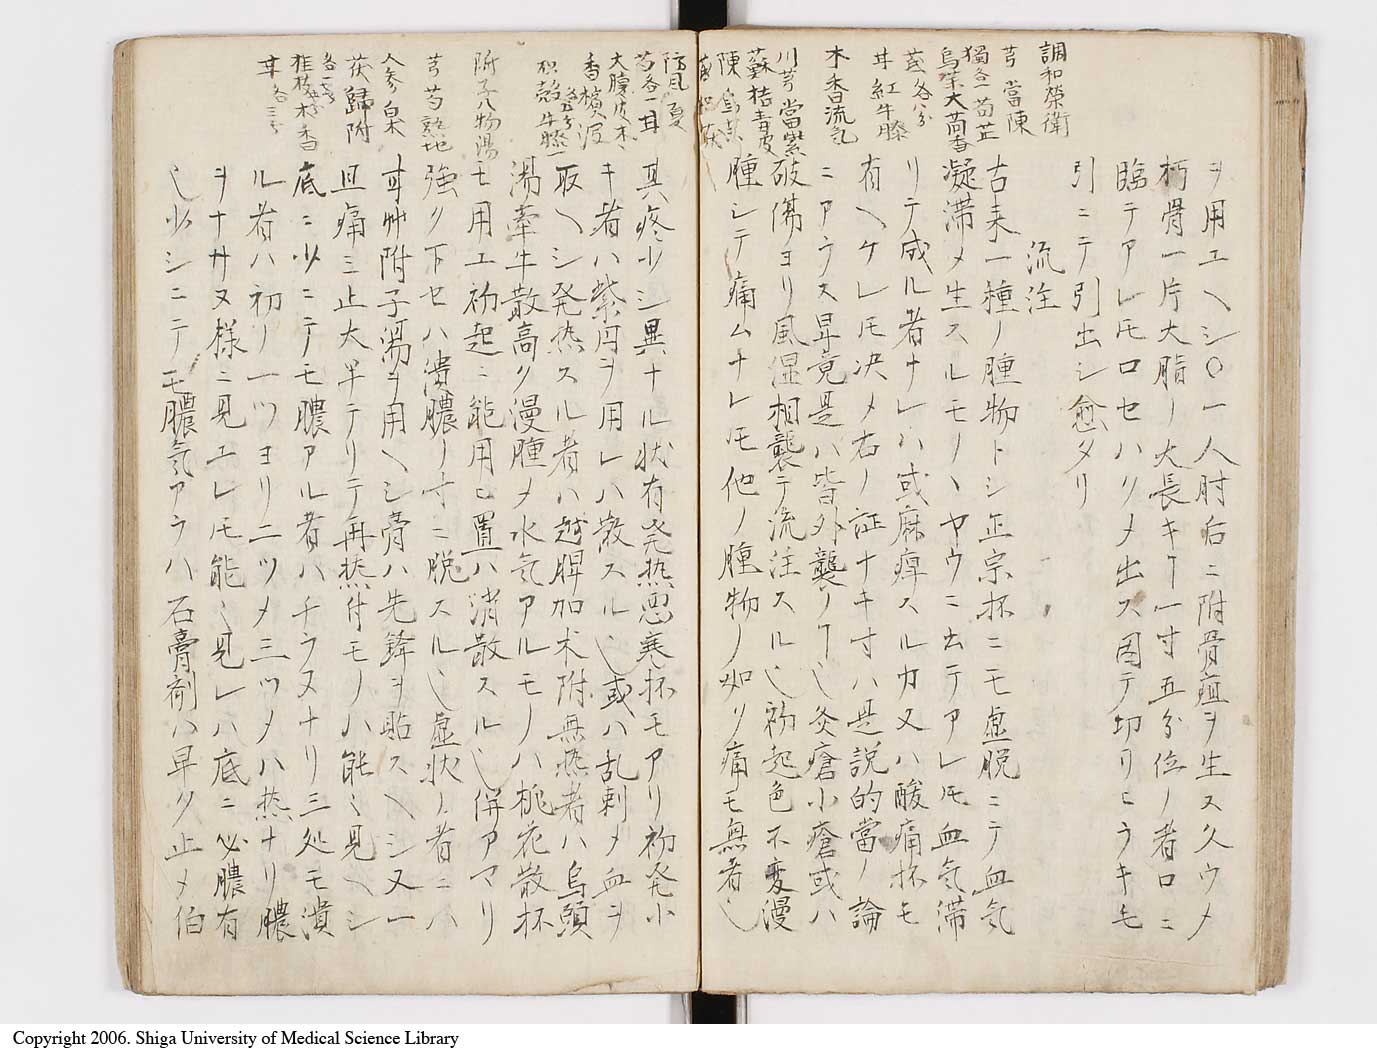 調和榮衛
芎當陳
獨各一芍芷
烏茱大茴香
莪各八分
甘紅牛膝
木香流気
川芎當紫
蘇桔青皮
陳烏茱
ヲ用エヘシ○一人肘后ニ附骨疽ヲ生ス久ウメ
朽骨一片大脂ノ大長キヿ一寸五分位ノ者口ニ
臨テアレ𪜈口セハリメ出ス因テ切リヒラキ毛
引ニテ引出シ愈タリ
流注
古来一種ノ腫物トシ正宗抔ニモ虚脱ニテ血気
凝滞メ生スルモノヽヤウニ云テアレ𪜈血気滞
リテ成ル者ナレハ或麻痺スルカ又ハ酸痛抔モ
有ヘケレ𪜈决メ右ノ証ナキ寸ハ是説的當ノ論
ニアラス畢竟是ハ皆外襲ノヿ也灸瘡小瘡或ハ
破傷ヨリ風湿相襲テ流注スル也初起色不変漫
腫シテ痛ムナレ𪜈他ノ腫物ノ如ク痛モ無者也
防風夏
芍各一甘
大腹皮木
香檳沢
枳殻各五分牛膝一
附子八物湯
芎芍熟地
人参皂
茯歸附
各一匁
桂枝五分木香
甘各三分
其疼少シ異ナル状有発熱悪寒抔モアリ初発小
キ者ハ紫円ヲ用レハ散スル也或ハ乱刺メ血ヲ
取ヘシ発熱スル者ハ越脾加朮附無熱者ハ烏頭
湯牽牛散高ク漫腫メ水気アルモノハ桃花散抔
モ用エ初起ニ能用ヒ置ハ消散スル也併アマリ
強ク下セハ潰膿ノ寸ニ脱スル也虚状ノ者ニハ
甘艸附子湯ヲ用ヘシ膏ハ先鋒ヲ貼スヘシ又一
旦痛ミ止大半テリテ再熱付モノハ能々見ヘシ
底ニ少ニテモ膿アル者ハチラヌナリ三処モ潰
ル者ハ初ノ一ツヨリ二ツメ三ツメハ熱ナリ膿
ヲナサヌ様ニ見エレ𪜈能々見レハ底ニ必膿有
也少シニテモ膿気アラハ石膏剤ハ早ク止メ伯
Copyright 2006. Shiga University of Medical Science Library